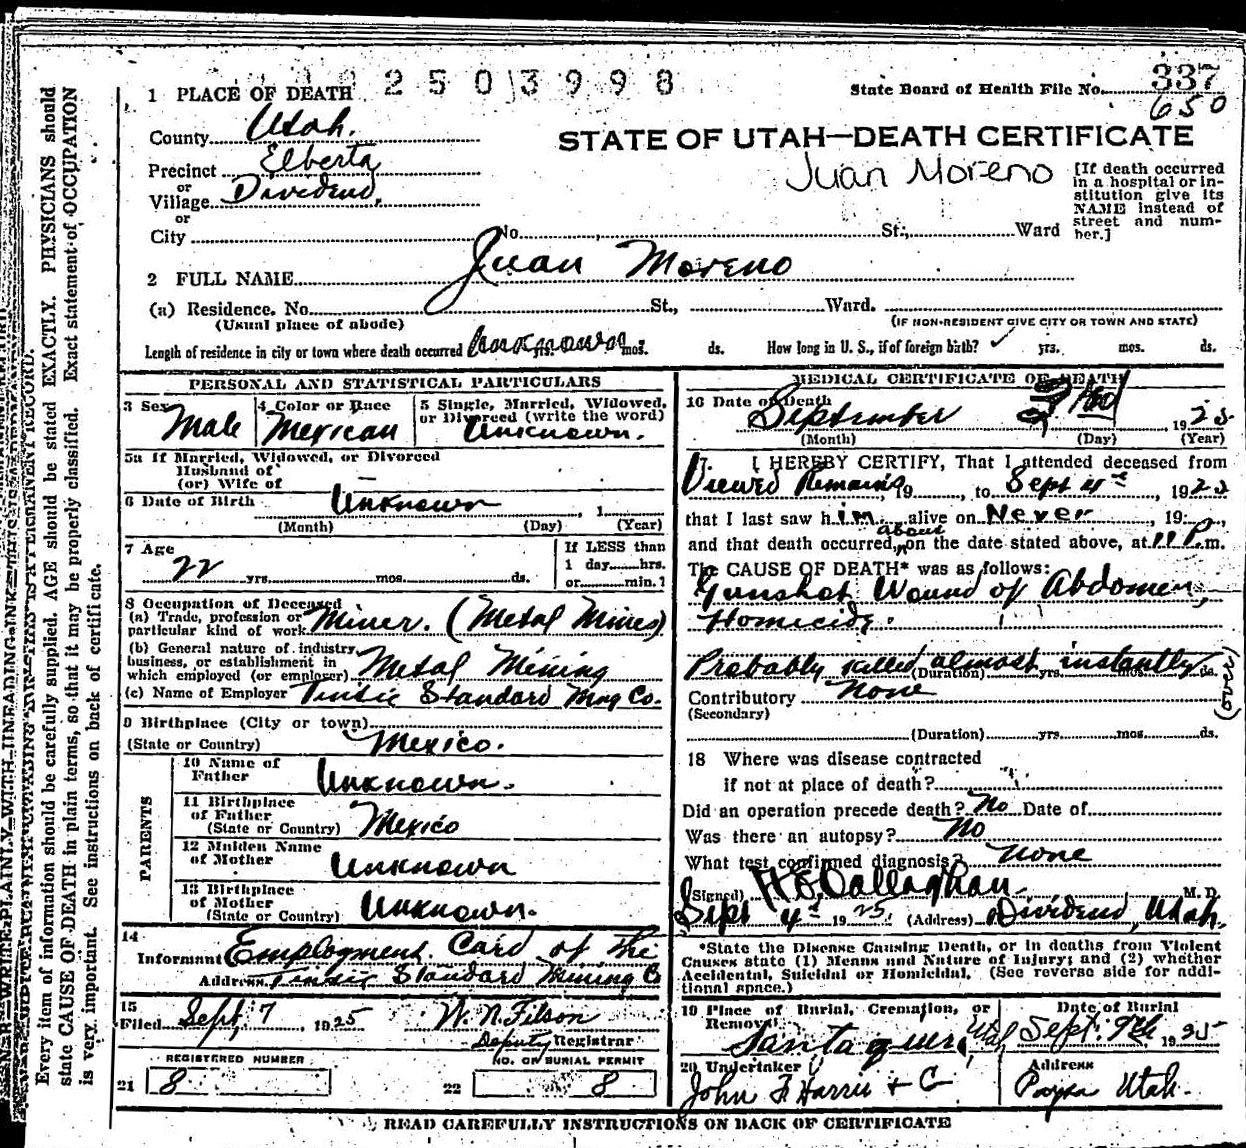 2503998
State Board of Health File No. 337
650
1 PLACE OF DEATH
County Utah.
STATE OF UTAH—DEATH CERTIFICATE
Precinct Elberta
or
Village Dividend,
or
City
Juan Moreno
[If death occurred
in a hospital or in-
stitution give its
NAME instead of
street and num-
ber.]
No. , St., Ward
2 FULL NAME Juan Moreno
(a) Residence. No. St., Ward.
(Usual place of abode)
(IF NON-RESIDENT GIVE CITY OR TOWN AND STATE)
Length of residence in city or town where death occurred Unknown yrs. mos. ds. How long in U. S., if of foreign birth? ✓ yrs. mos. ds.
PERSONAL AND STATISTICAL PARTICULARS
3 Sex Male
4 Color or Race Mexican
5 Single, Married, Widowed,
or Divorced (write the word)
Unknown.
5a If Married, Widowed, or Divorced
Husband of
(or) Wife of —
6 Date of Birth Unknown , 1
(Month) (Day) (Year)
7 Age
22 yrs. mos. ds.
If LESS than
1 day hrs.
or min.?
8 Occupation of Deceased
(a) Trade, profession or
particular kind of work Miner. (Metal Mines)
(b) General nature of industry,
business, or establishment in
which employed (or employer) Metal Mining
(c) Name of Employer Tintic Standard Mng Co.
9 Birthplace (City or town)
(State or Country) Mexico.
PARENTS
10 Name of
Father Unknown.
11 Birthplace
of Father
(State or Country) Mexico
12 Maiden Name
of Mother Unknown
13 Birthplace
of Mother
(State or Country) Unknown.
14
Informant Employment Card of the
Address Tintic Standard Mining Co
15
Filed Sept 7 1925 W. N. Filson
Deputy Registrar
REGISTERED NUMBER
21 8
NO. OF BURIAL PERMIT
22 8
MEDICAL CERTIFICATE OF DEATH
16 Date of Death
September 1925
(Month) (Day) (Year)
17. I HEREBY CERTIFY, That I attended deceased from
Viewed Remains, 19 , to Sept 4th , 1925
that I last saw him alive on Never , 19 ,
about
and that death occurred, on the date stated above, at 11 P. m.
The CAUSE OF DEATH* was as follows:
Gunshot Wound of Abdomen,
Homicide.
Probably killed almost instantly
(Duration) yrs. mos. ds.
(over)
Contributory None
(Secondary)
(Duration) yrs. mos. ds.
18 Where was disease contracted
if not at place of death?
Did an operation precede death? No Date of
Was there an autopsy? No
What test confirmed diagnosis? None
(Signed) Callaghan M. D.
Sept 4th 1925 (Address) Dividend, Utah.
*State the Disease Causing Death, or in deaths from Violent
Causes state (1) Means and Nature of Injury; and (2) whether
Accidental, Suicidal or Homicidal. (See reverse side for addi-
tional space.)
19 Place of Burial, Cremation, or
Removal
Santaquin Utah
Date of Burial
Sept. 7th 1925
20 Undertaker
John F Harris + Co
Address
Payson Utah.
READ CAREFULLY INSTRUCTIONS ON BACK OF CERTIFICATE
Every item of information should be carefully supplied. AGE should be stated EXACTLY. PHYSICIANS should
state CAUSE OF DEATH in plain terms, so that it may be properly classified. Exact statement of OCCUPATION
is very important. See instructions on back of certificate.